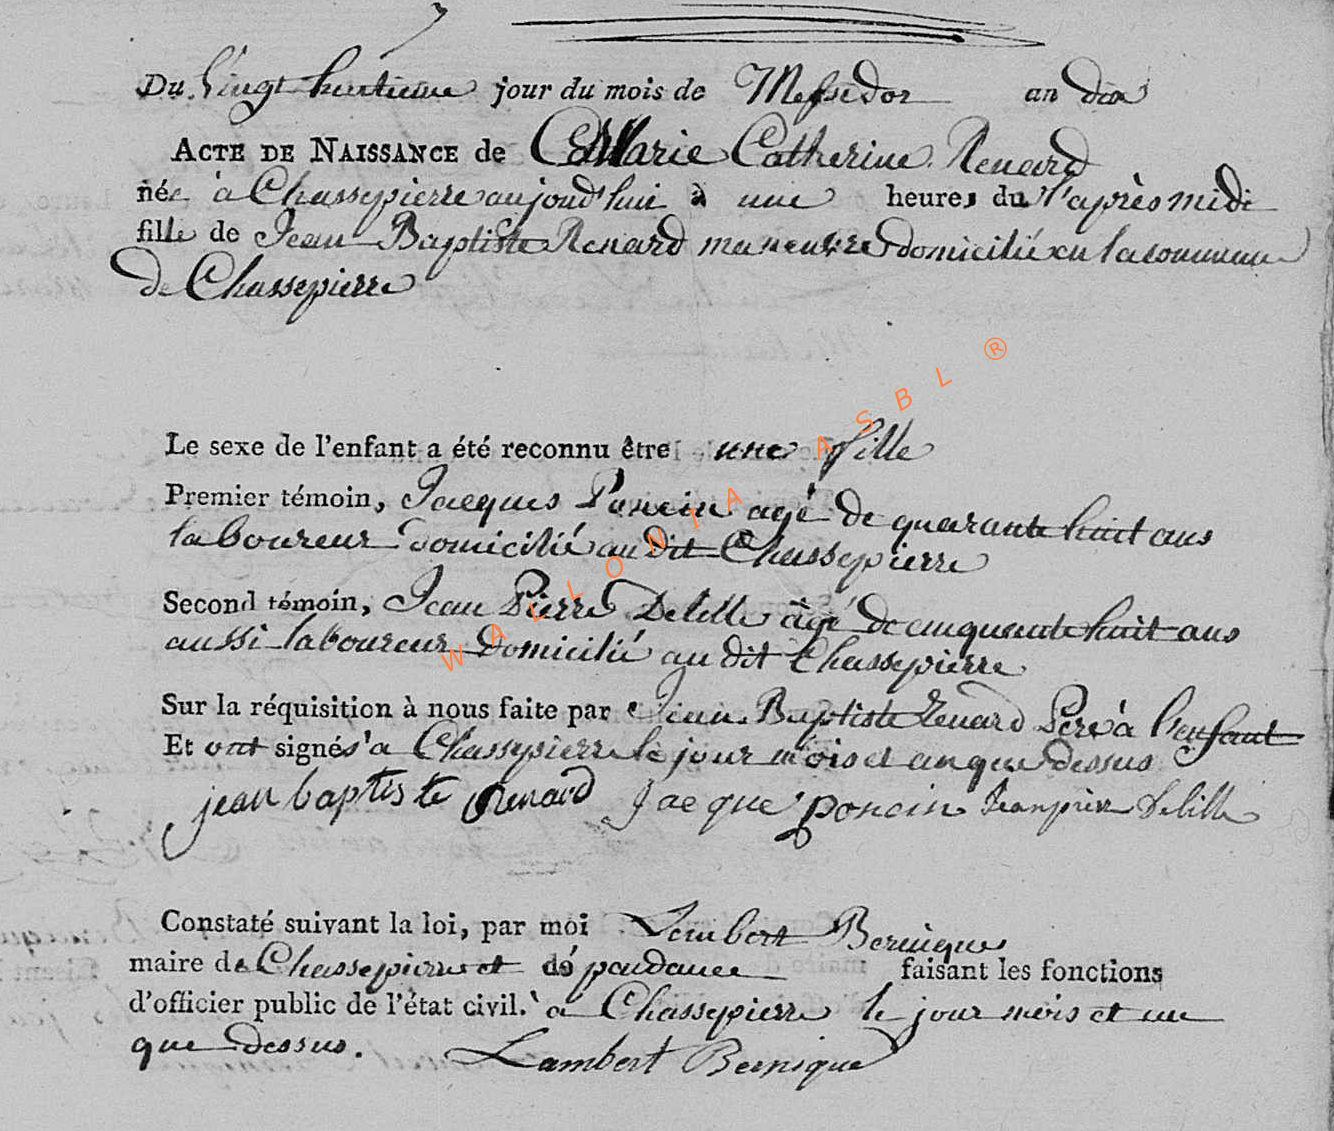 Du Vingt huitieme jour du mois de Messidor an dix
ACTE DE NAISSANCE de Marie Catherine Renard
née à Chassepierre aujourd'hui à une heures du l'après midi
fille de Jean Baptiste Renard maneuvre domicilié en la commune
de Chassepierre
Le sexe de l'enfant a été reconnu être une fille
Premier témoin, Jacques Poncin agé de quarante huit ans
laboureur domicilié au dit Chassepierre
Second témoin, Jean Pierre Delille âgé de cinquante huit ans
aussi laboureur domicilié au dit Chassepierre
Sur la réquisition à nous faite par Jean Baptiste Renard Pere à l'enfant
Et ont signés a Chassepierre le jour mois et an que dessus
jean baptiste Renard Jacque poncin Jean pierre Delille
Constaté suivant la loi, par moi Lambert Bernique
maire de Chassepierre et dépendance faisant les fonctions
d'officier public de l'état civil. à Chassepierre le jour mois et an
que dessus. Lambert Bernique
WALLONIA ASBL ®